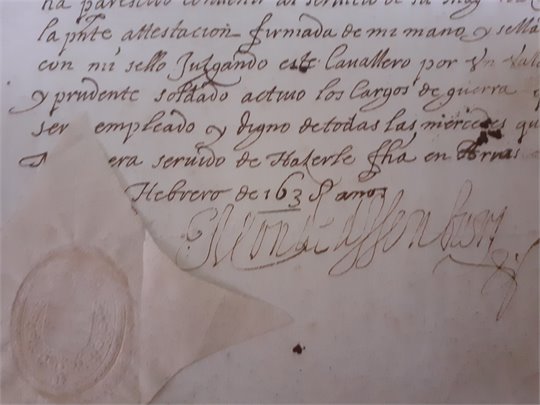 ha parescido convenir al servicio de su mag
la pnte attestacion firmada de mi mano, y sella
con mi sello Juzgando este Cavallero por Un Vale
y prudente soldado activo los Cargos de guerra
ser empleado y digno de todas las mercedes qu
era servido de Hazerle fha en
Hebrero de 163 anos